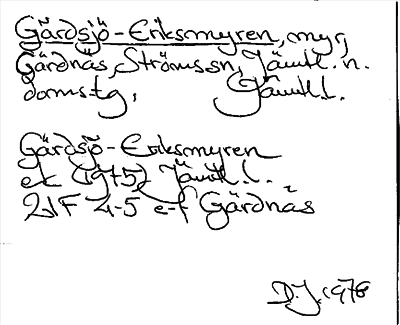 Gärdsjö-Eriksmyren, myr,
Gärdnäs, Ströms sn, Jämtl. n.
domstg, Jämtl. l.
Gärdsjö-Eriksmyren
ek (1975) Jämtl. l.
21F 4-5 e-f Gärdnäs
D.J. 1978